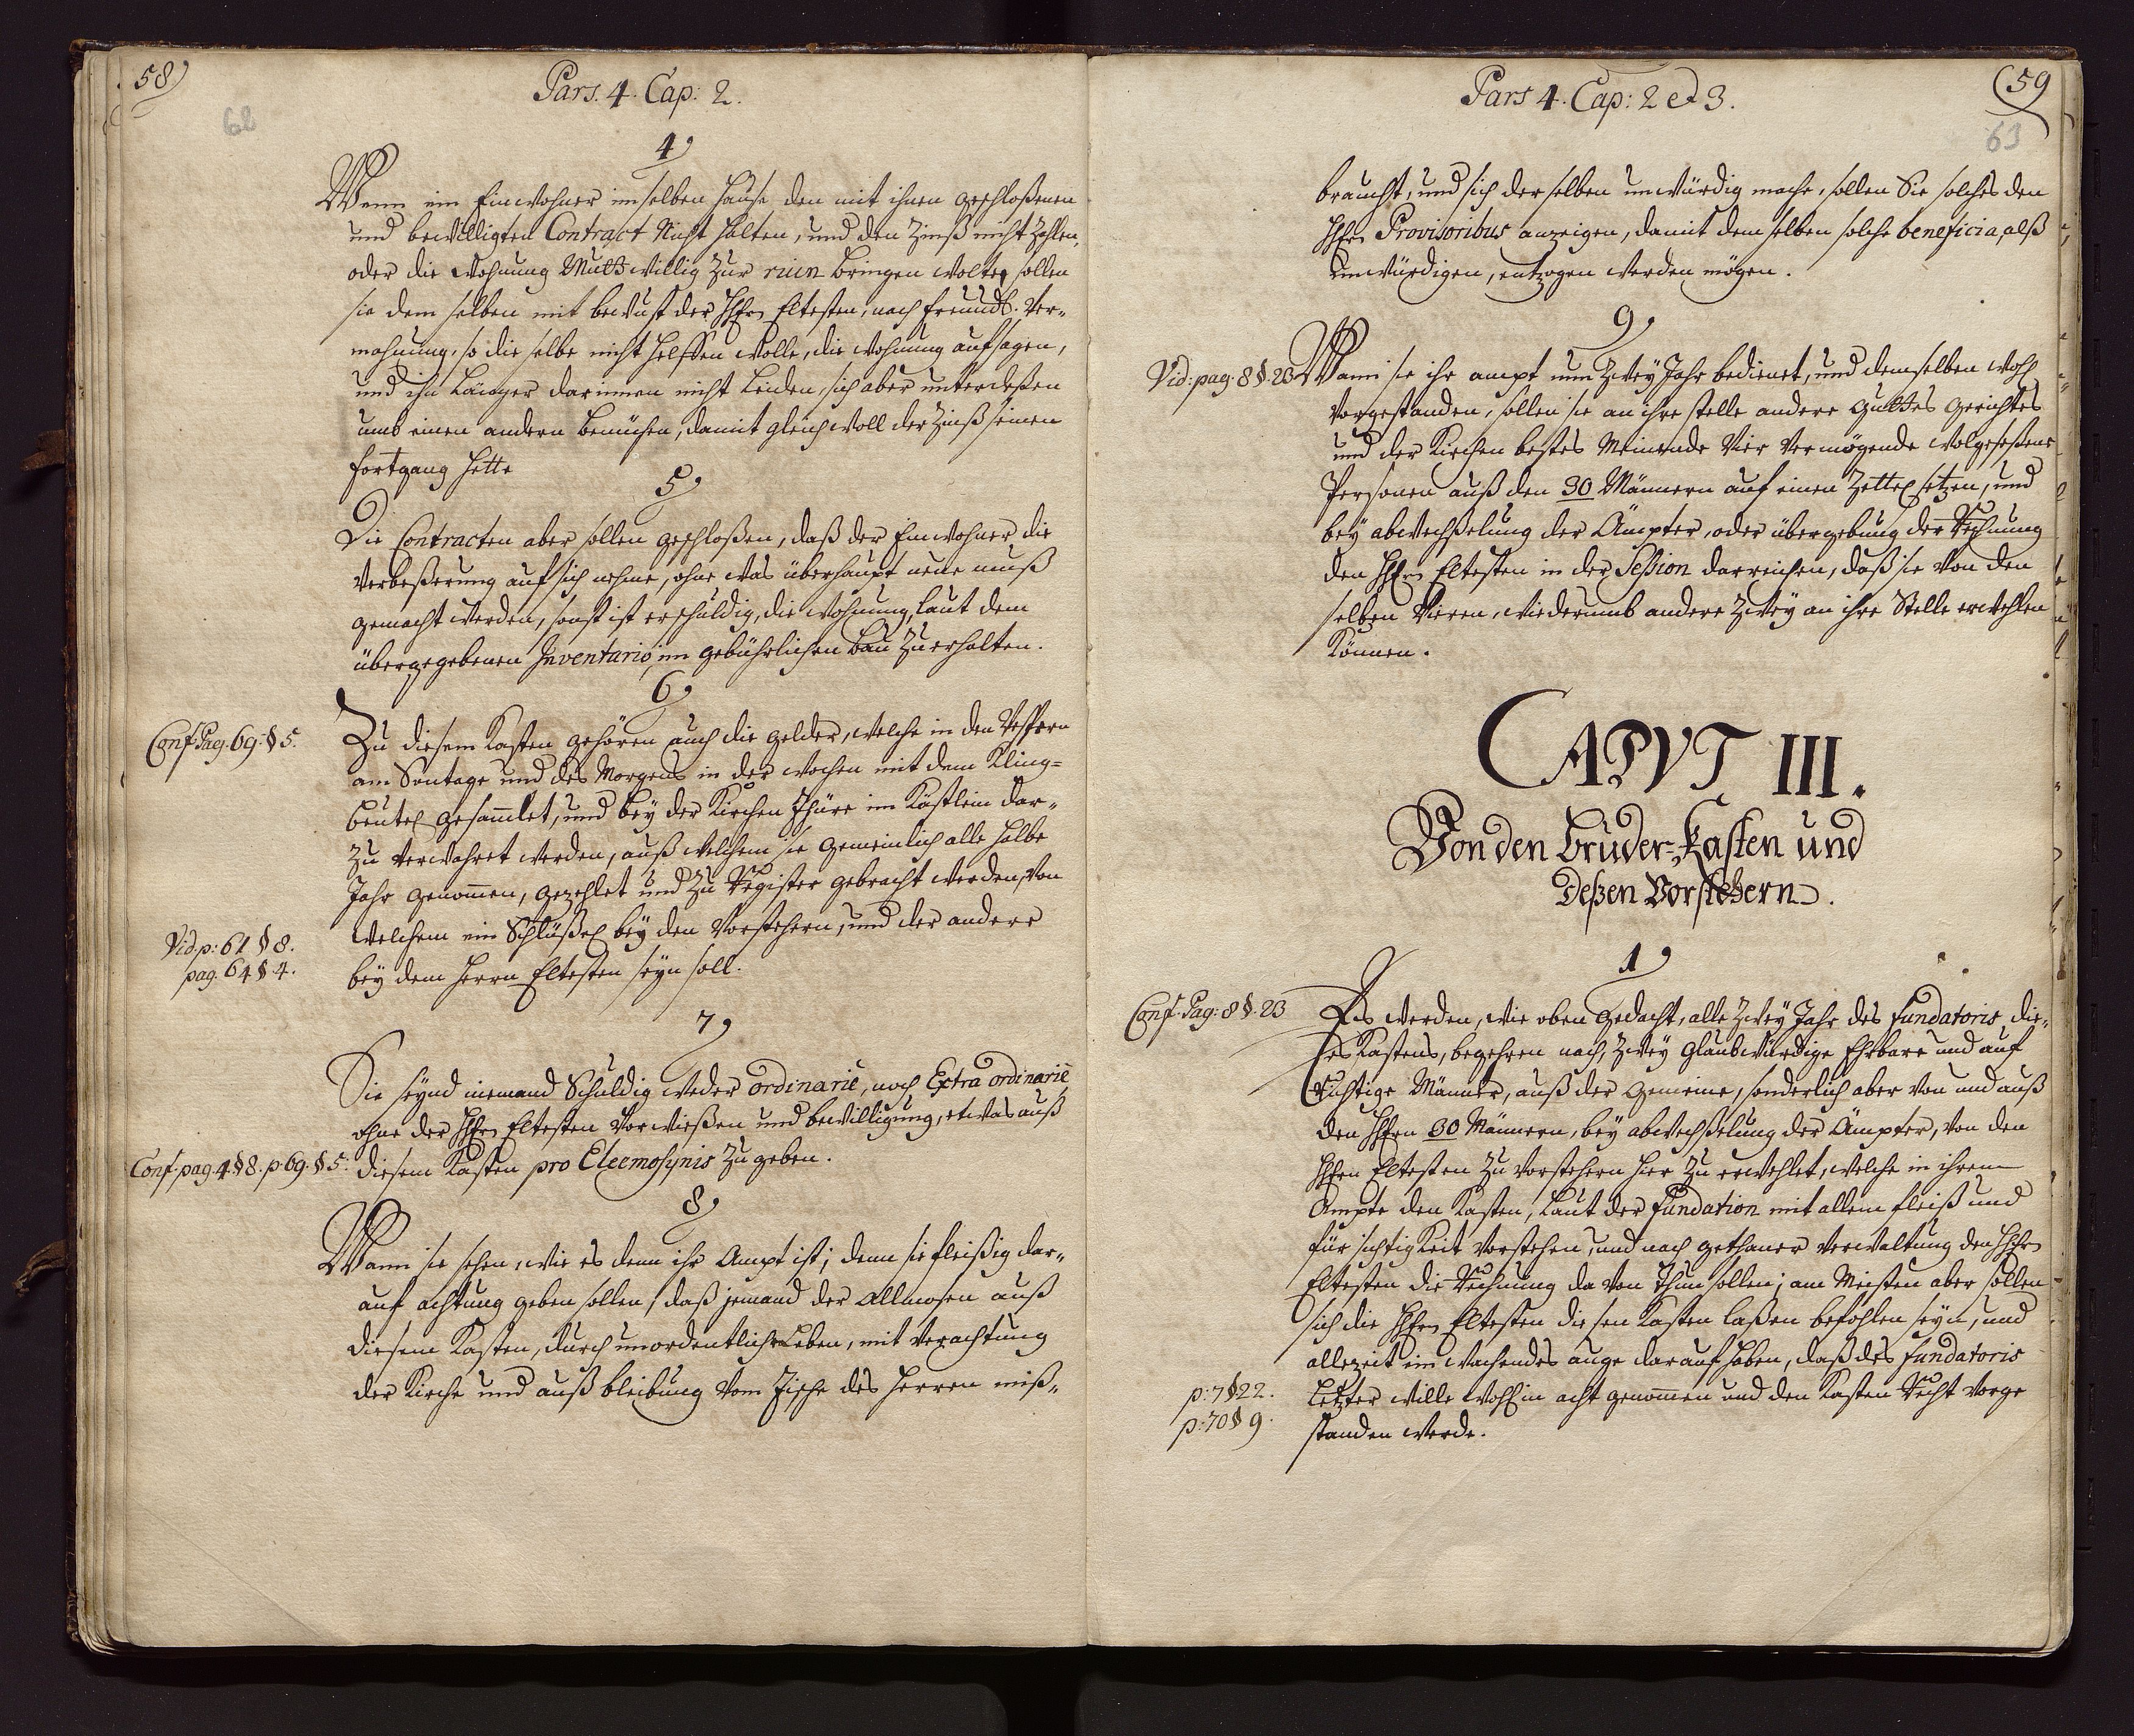 58)
62
Pars. 4. Cap: 2.
4,
Wenn ein Einwohner im selben Hause den mit ihnen geschloßenen
und bewilligten Contract Nicht halten, und den Zinß nicht Zahlen,
oder die Wohnung Muttwillig Zur ruin bringen Wolte, sollen
sie dem selben mit bewust der HHrn Eltesten, nach freundl. Ver-
mahnung, so die selbe nicht helffen Wolle, die Wohnung aufsagen,
und ihn Länger darinnen nicht Leiden, sich aber unterdeßen
umb einen andern bemühen, damit gleich Woll der Zinß seinen
fortgang hette
5,
Die Contracten aber sollen geschloßen, daß der Einwohner die
Verbeßerung auf sich nehme, ohne was überhaupt neue muß
gemacht Werden, sonst ist er schuldig, die Wohnung, laut dem
übergegebenen Inventario, im gebührlichen bau Zu erhalten.
6,
Conf. Pag. 69. § 5.
Zu diesem Kasten gehören auch die gelder, welche in den Vespern
am Sontage und des Morgens in der Wochen mit dem Kling=
beutel gesamlet, und bey der Kirchen Thüre im Kästlein dar-
Zu Verwahret werden, auß Welchem sie gemeinlich alle halbe
Jahr genommen, gezehlet und Zu Register gebracht werden, Von
Vid. p: 61 § 8.
Welchem ein Schlüßel bey den Vorstehern, und der andere
pag. 64 § 4.
bey dem Herrn Eltesten seyn soll.
7,
Sie seynd niemand Schuldig weder ordinariè, noch Extra ordinariè
ohne der HHrn Eltesten Vorwießen und bewilligung, etwas auß
Conf. pag. 4. § 8. p. 69. § 5.
diesem Kasten pro Eleemosynis Zu geben.
8,
Wann sie sehen, wie es denn ihr Ampt ist; denn sie fleißig dar-
auf achtung geben sollen, daß jemand der Allmosen auß
diesem Kasten, durch unordentlich Leben, mit Verachtung
der Kirche und außbleibung Vom Tische des Herren miß-
Pars 4. Cap: 2 et 3.
(59
63
braucht, und sich derselben unwürdig mache, sollen Sie solches den
HHrn Provisoribus anzeigen, damit dem selben solche beneficia, alß
Unwürdigen, entzogen Werden mögen.
9,
Vid: pag. 8 §. 23
Wann sie ihr ampt nun Zwey Jahr bedienet, und demselben Wohl
Vorgestanden, sollen sie an ihre stelle andere guttes gerichtes
und der Kirchen bestes Meinende Vier Vermögende Wolgeseßene
Personen auß den 30 Männern auf einen Zettel setzen, und
bey abwechßelung der Ämpter, oder übergebung der Rechnung
den HHrn Eltesten in der Seßion darreichen, daß sie Von den
selben Vieren, Wiederumb andere Zwey an ihre Stelle erwehlen
Können.
CAPVT III.
Von den Brüder=Kasten und
deßen Vorstehern.
1,
Conf. Pag: 8 §. 23
Es werden, wie oben gedacht, alle Zwey Jahr des fundatoris, die-
ses Kastens, begehren nach, Zwey glaubwürdige Ehrbare und auf
Richtige Männer, auß der gemeine, sonderlich aber Von und auß
den HHrn 30 Männern, bey abwechßelung der Ämpter, von den
HHrn Eltesten Zu Vorstehern hier Zu erwehlet, welche in ihrem
Ampte den Kasten, Laut der Fundation mit allem fleiß und
fürsichtigKeit Vorstehen, und nach gethaner Verwaltung den HHrn
Eltesten die Rechnung da Von Thun sollen; am Meisten aber sollen
sich die HHrn Eltesten diesen Kasten laßen befohlen seyn, und
allezeit ein wachendes auge darauf haben, daß des fundatoris
p: 7 § 22.
Letzter Wille Wohl in acht genommen und den Kasten Recht Vorge
p: 70 § 9.
standen Werde.